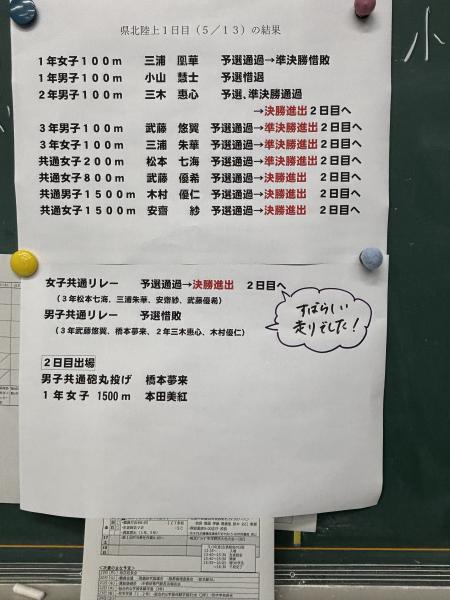 小
県北陸上1日目(5/13)の結果
1年女子100m 三浦 凰華 予選通過→準決勝惜敗
1年男子100m 小山 慧士 予選惜退
2年男子100m 三木 恵心 予選、準決勝通過
→決勝進出 2日目へ
3年男子100m 武藤 悠翼 予選通過→準決勝進出 2日目へ
3年女子100m 三浦 朱華 予選通過→準決勝進出 2日目へ
共通女子200m 松本 七海 予選通過→準決勝進出 2日目へ
共通女子800m 武藤 優希 予選通過→決勝進出 2日目へ
共通男子1500m 木村 優仁 予選通過→決勝進出 2日目へ
共通女子1500m 安齋 紗 予選通過→決勝進出 2日目へ
女子共通リレー 予選通過→決勝進出 2日目へ
(3年松本七海、三浦朱華、安齋紗、武藤優希)
男子共通リレー 予選惜敗
(3年武藤悠翼、橋本夢来、2年三木恵心、木村優仁)
すばらしい
走りでした!
2日目出場
男子共通砲丸投げ 橋本夢来
1年女子 1500m 本田美紅